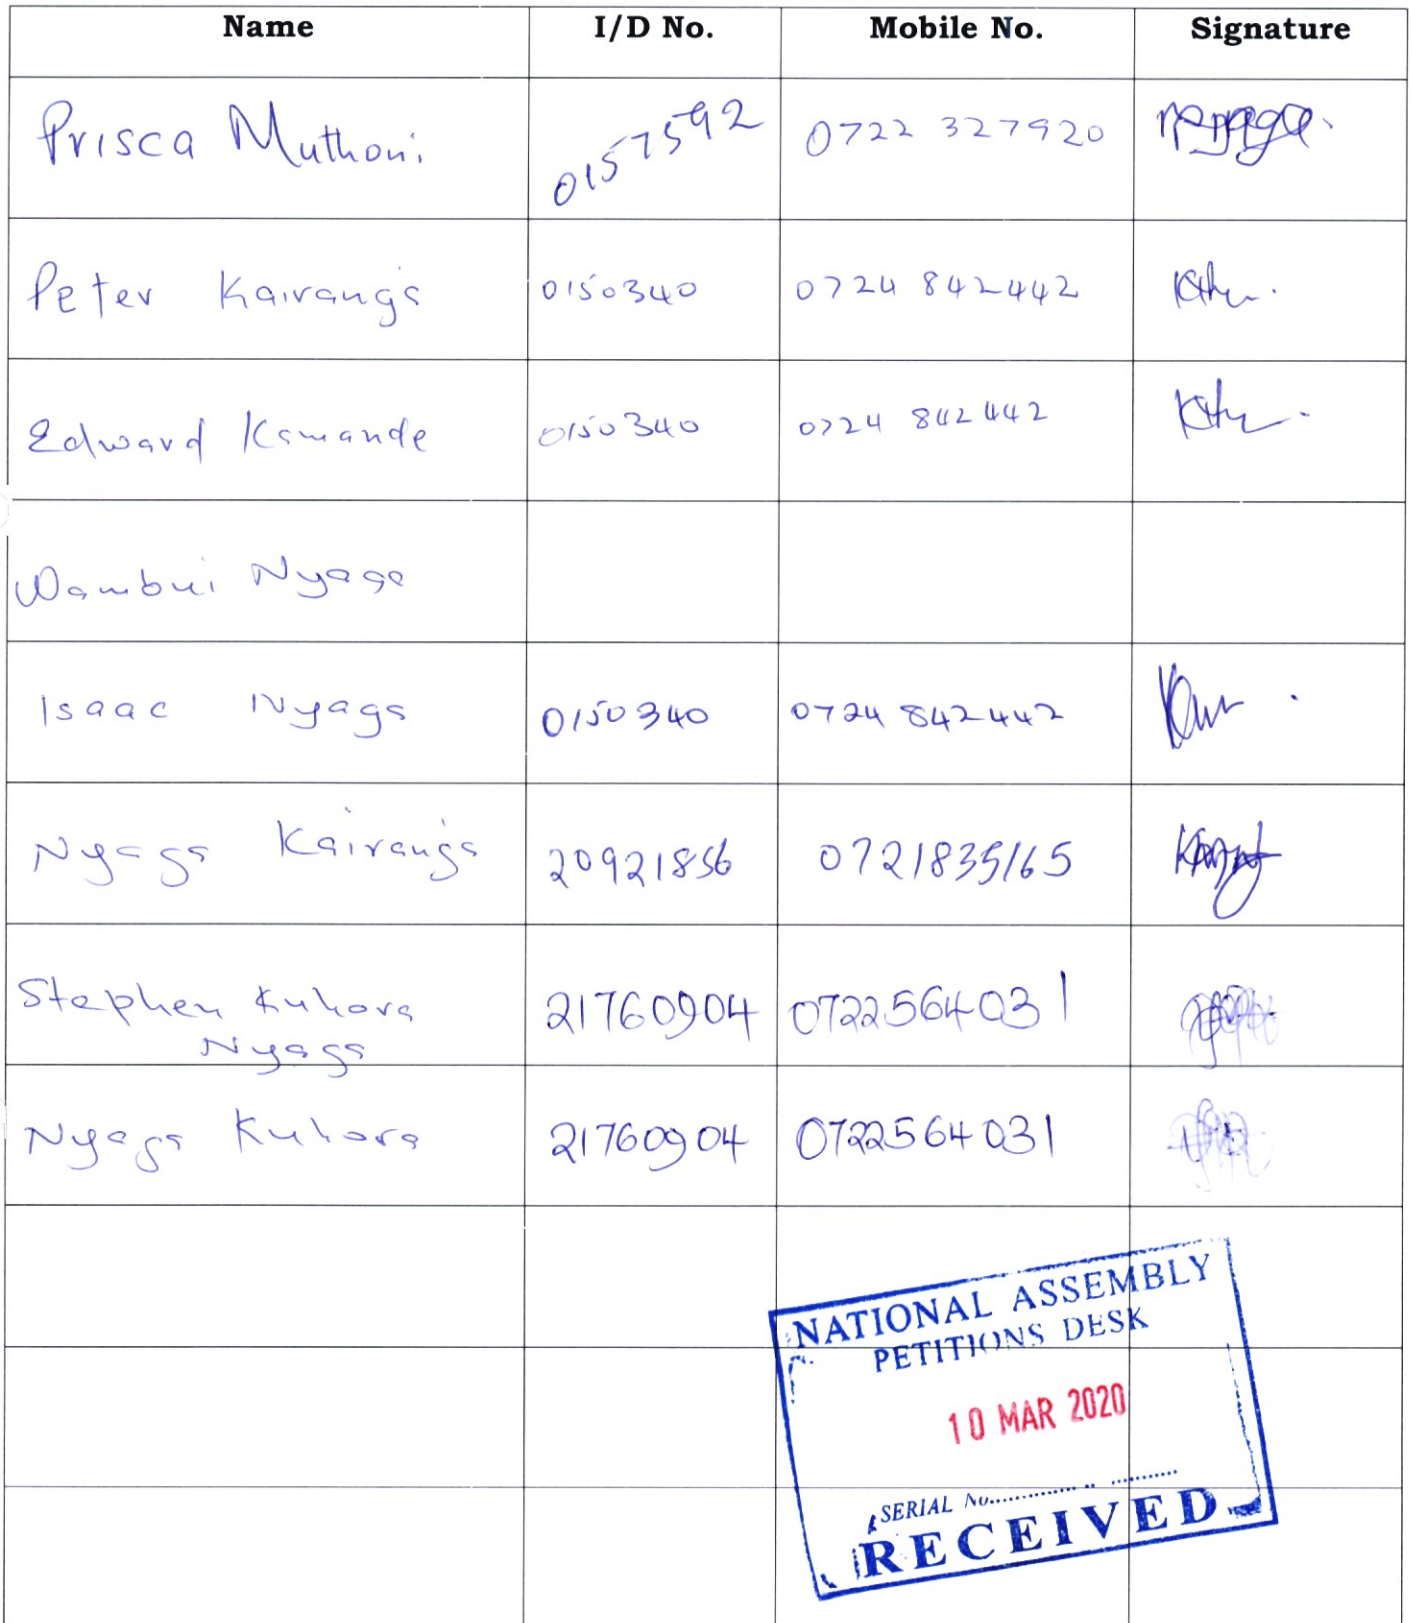 Name I/D No. Mobile No. Signature
Prisca Muthoni 0157592 0722 327920
Peter Kairanga 0150340 0724 842442
Edward Kamande 0150340 0724 842442
Wambui Nyaga
Isaac Nyaga 0150340 0724 842442
Nyaga Kairanga 20921856 0721835165
Stephen Kuhora 21760904 0722564031
Nyaga
Nyaga Kuhora 21760904 0722564031
NATIONAL ASSEMBLY
PETITIONS DESK
10 MAR 2020
SERIAL No.
RECEIVED